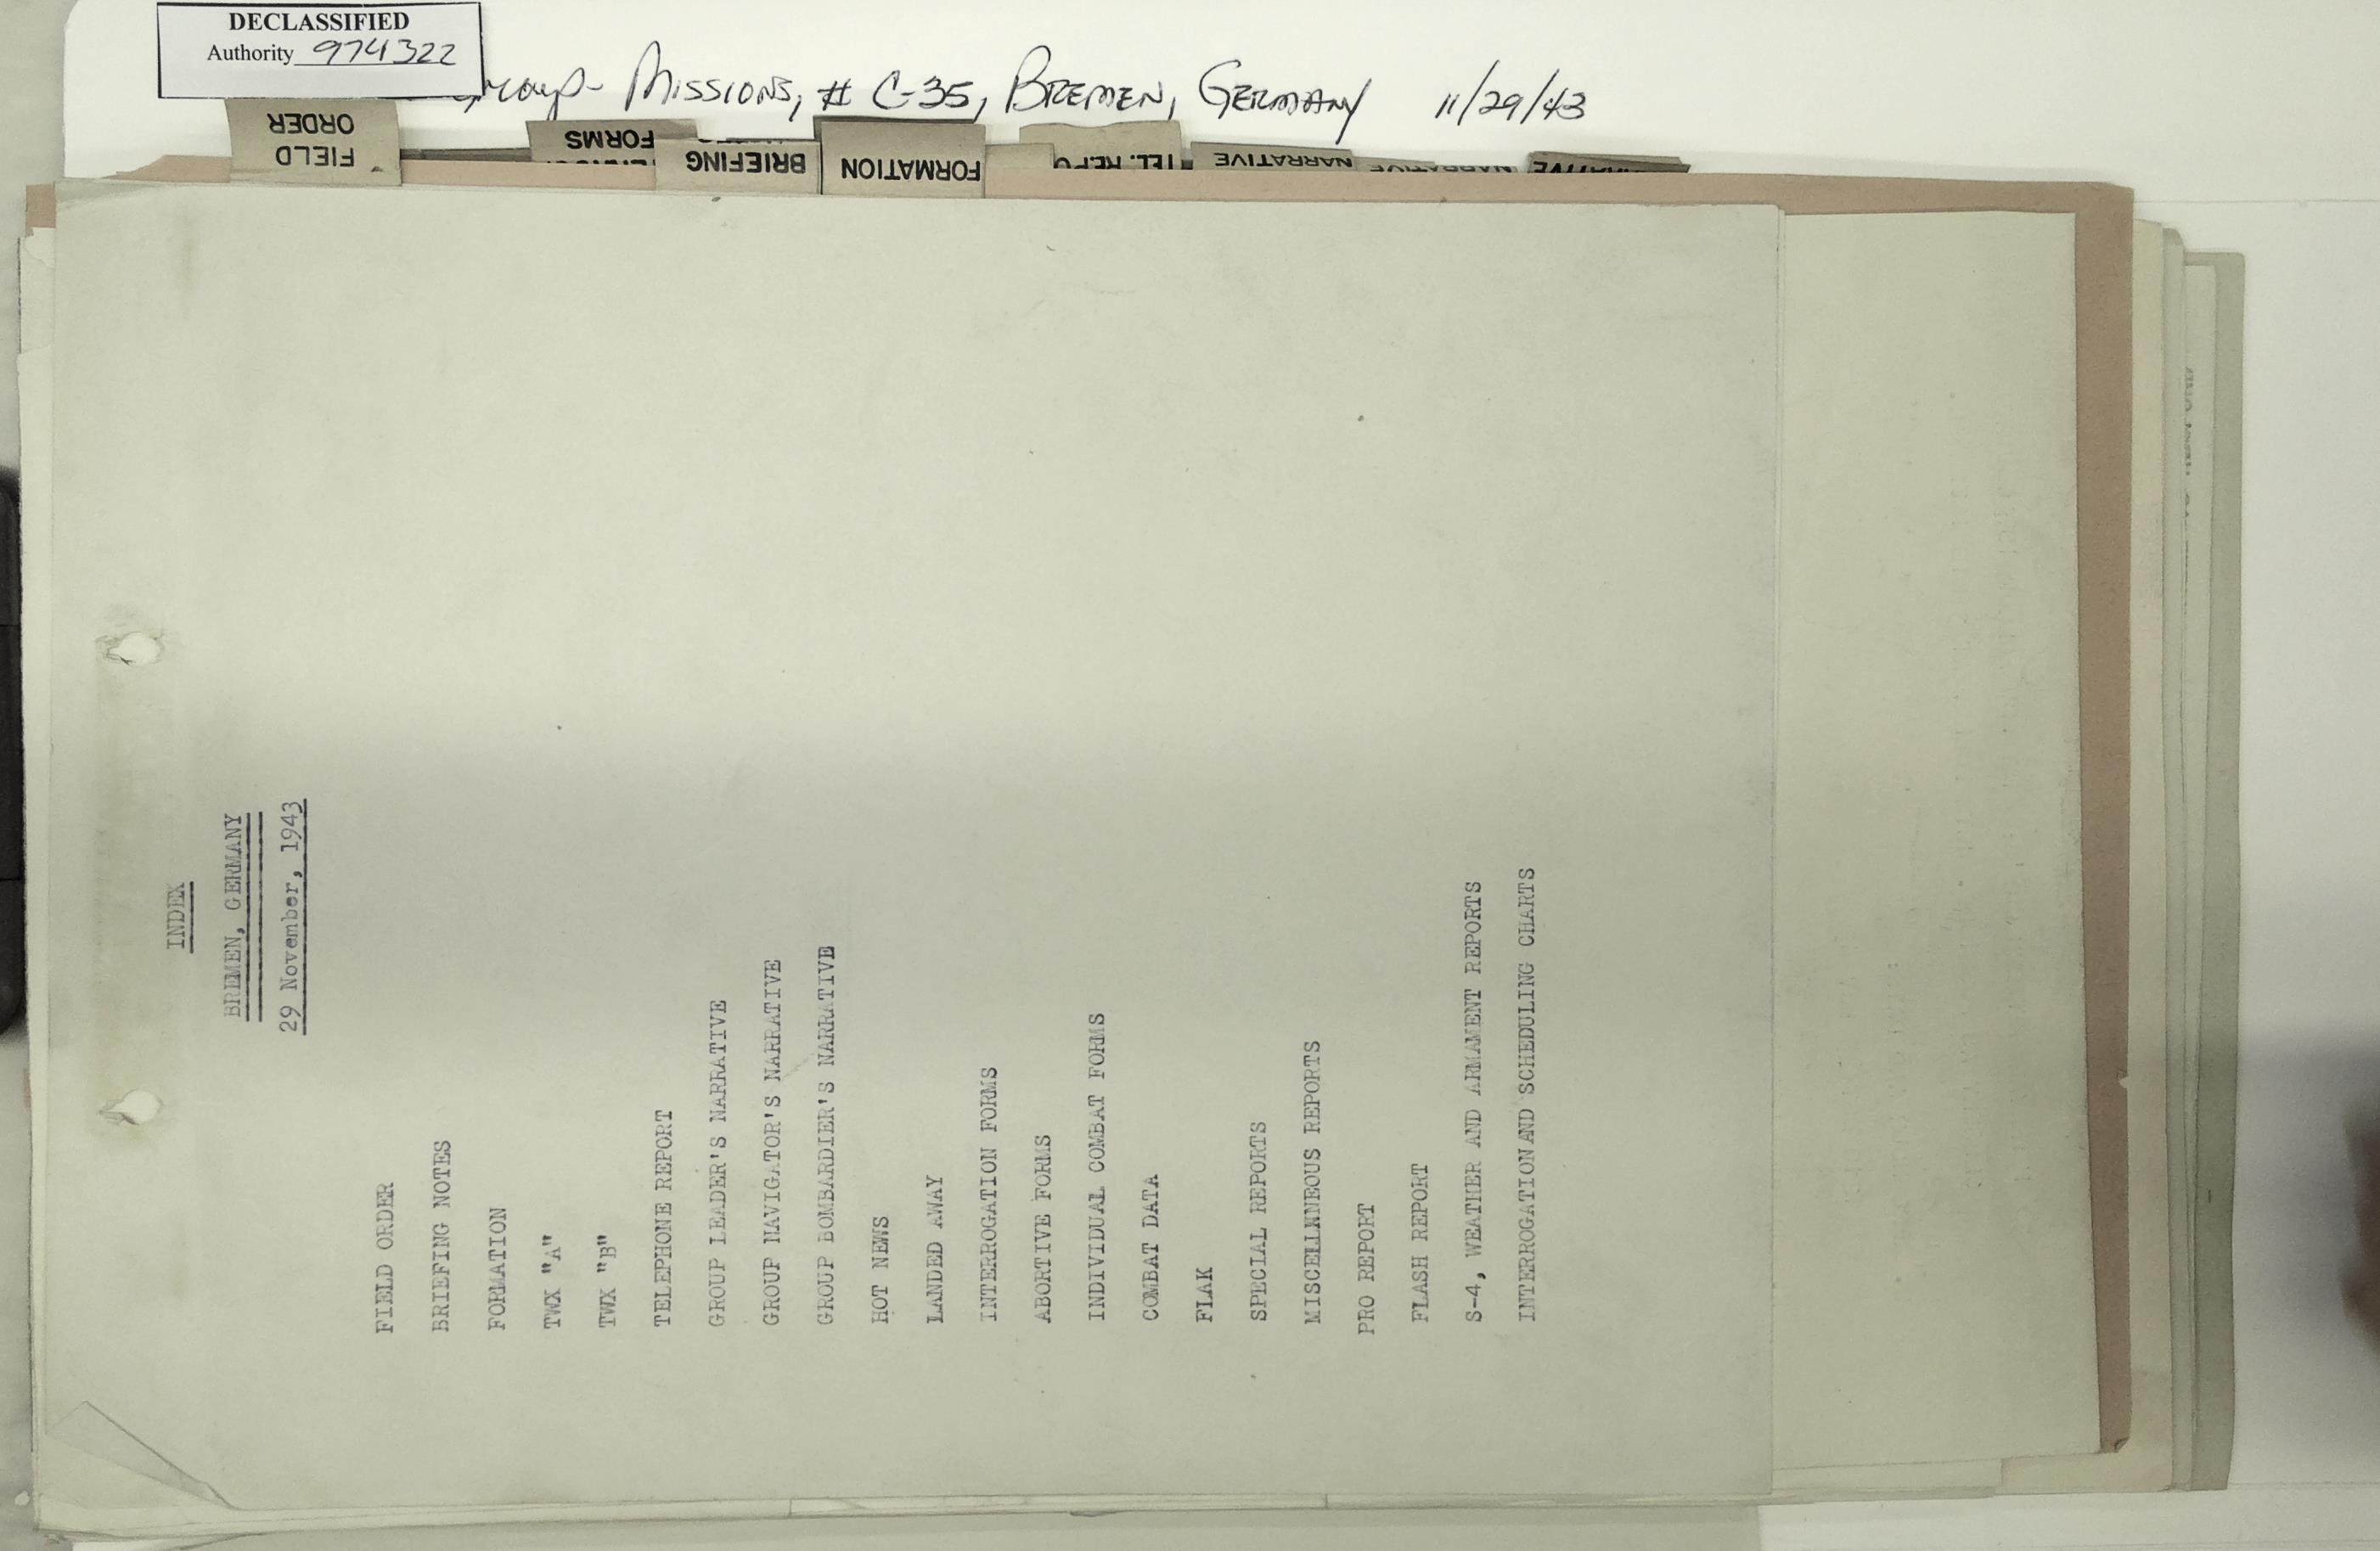 DECLASSIFIED
Authority 974322
Group - Missions, # C-35, Bremen, Germany 11/29/43
FIELD
ORDER
FORMS
BRIEFING
FORMATION
TEL. REPO
NARRATIVE
NARRATIVE
INDEX
BREMEN, GERMANY
29 November, 1943
FIELD ORDER
BRIEFING NOTES
FORMATION
TWX "A"
TWX "B"
TELEPHONE REPORT
GROUP LEADER'S NARRATIVE
GROUP NAVIGATOR'S NARRATIVE
GROUP BOMBARDIER'S NARRATIVE
HOT NEWS
LANDED AWAY
INTERROGATION FORMS
ABORTIVE FORMS
INDIVIDUAL COMBAT FORMS
COMBAT DATA
FLAK
SPECIAL REPORTS
MISCELLNNEOUS REPORTS
PRO REPORT
FLASH REPORT
S-4, WEATHER AND ARMAMENT REPORTS
INTERROGATION AND SCHEDULING CHARTS